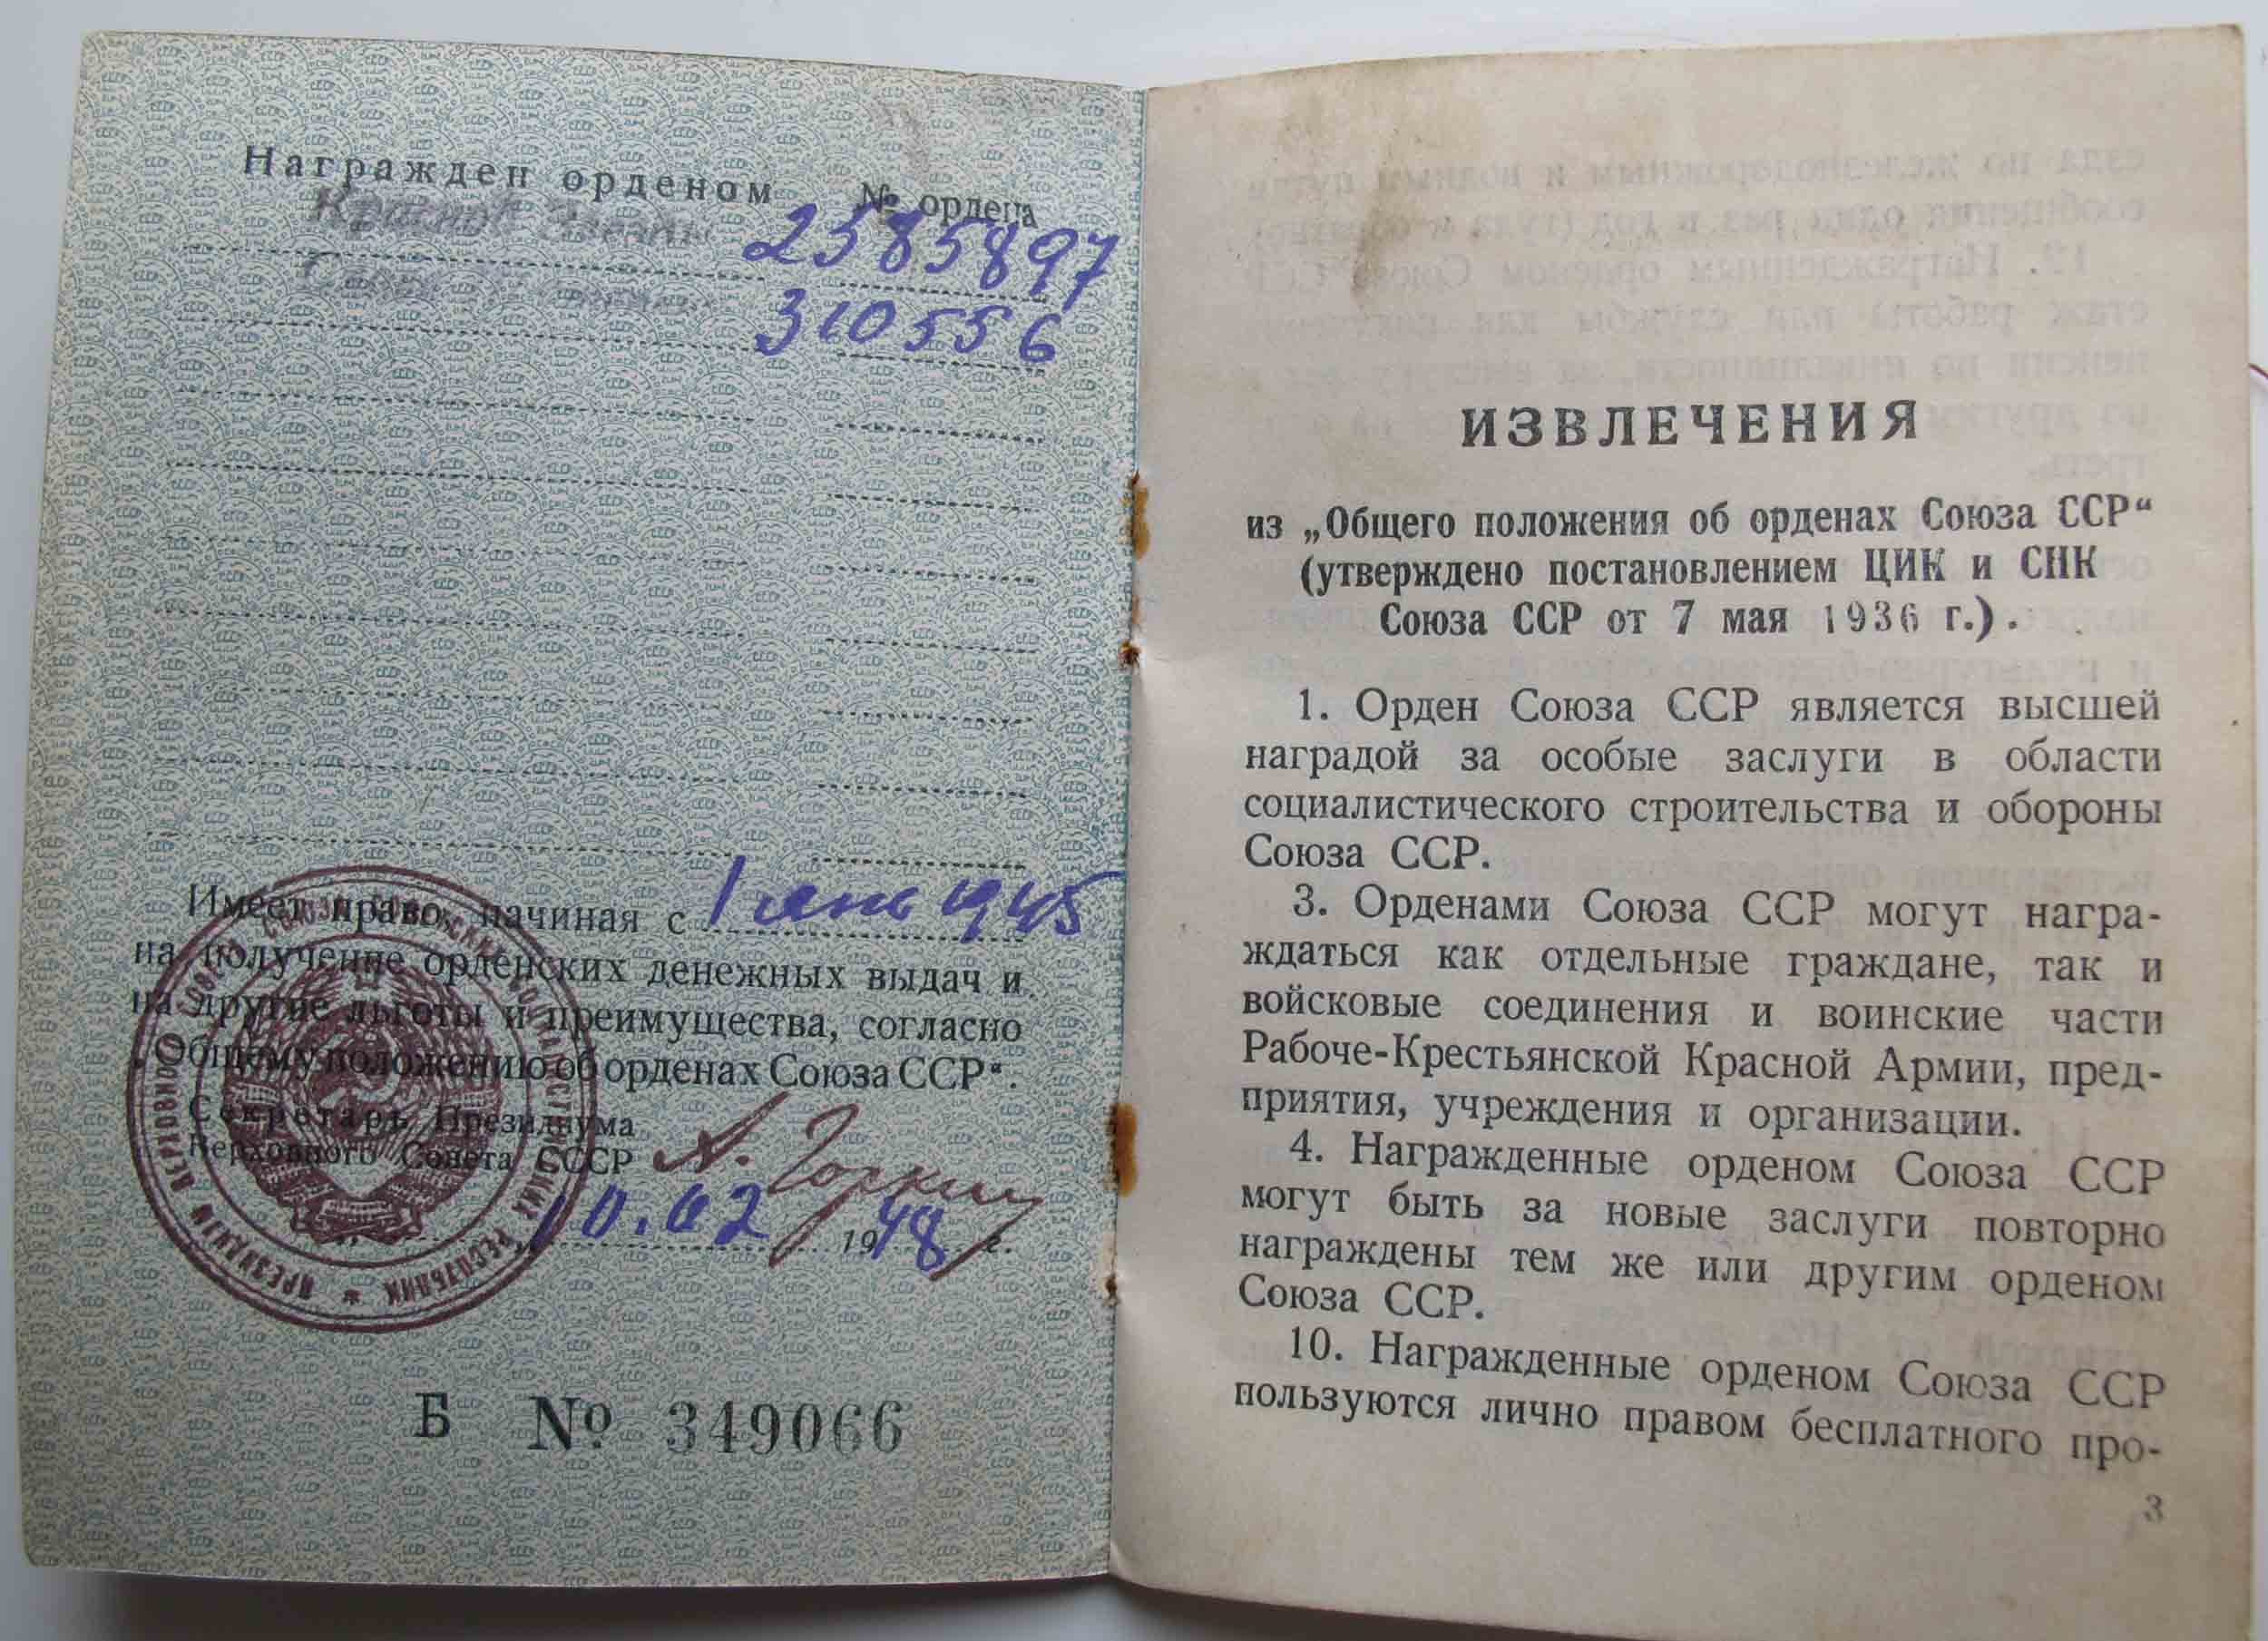 Награжден орденом № ордена
Красной Звезды 2585897
Славы 310556
Имеет право, начиная с 1 янв 1945
на получение орденских денежных выдач и
на другие льготы и преимущества, согласно
„Общему положению об орденах Союза ССР“.
Секретарь Президиума
Верховного Совета СССР А. Горкин
10.02 1948 г.
ПРЕЗИДИУМ ВЕРХОВНОГО СОВЕТА СОЮЗА СОВЕТСКИХ СОЦИАЛИСТИЧЕСКИХ РЕСПУБЛИК *
Б № 349066
ИЗВЛЕЧЕНИЯ
из „Общего положения об орденах Союза ССР“
(утверждено постановлением ЦИК и СНК
Союза ССР от 7 мая 1936 г.).
1. Орден Союза ССР является высшей
наградой за особые заслуги в области
социалистического строительства и обороны
Союза ССР.
3. Орденами Союза ССР могут награ-
ждаться как отдельные граждане, так и
войсковые соединения и воинские части
Рабоче-Крестьянской Красной Армии, пред-
приятия, учреждения и организации.
4. Награжденные орденом Союза ССР
могут быть за новые заслуги повторно
награждены тем же или другим орденом
Союза ССР.
10. Награжденные орденом Союза ССР
пользуются лично правом бесплатного про-
3